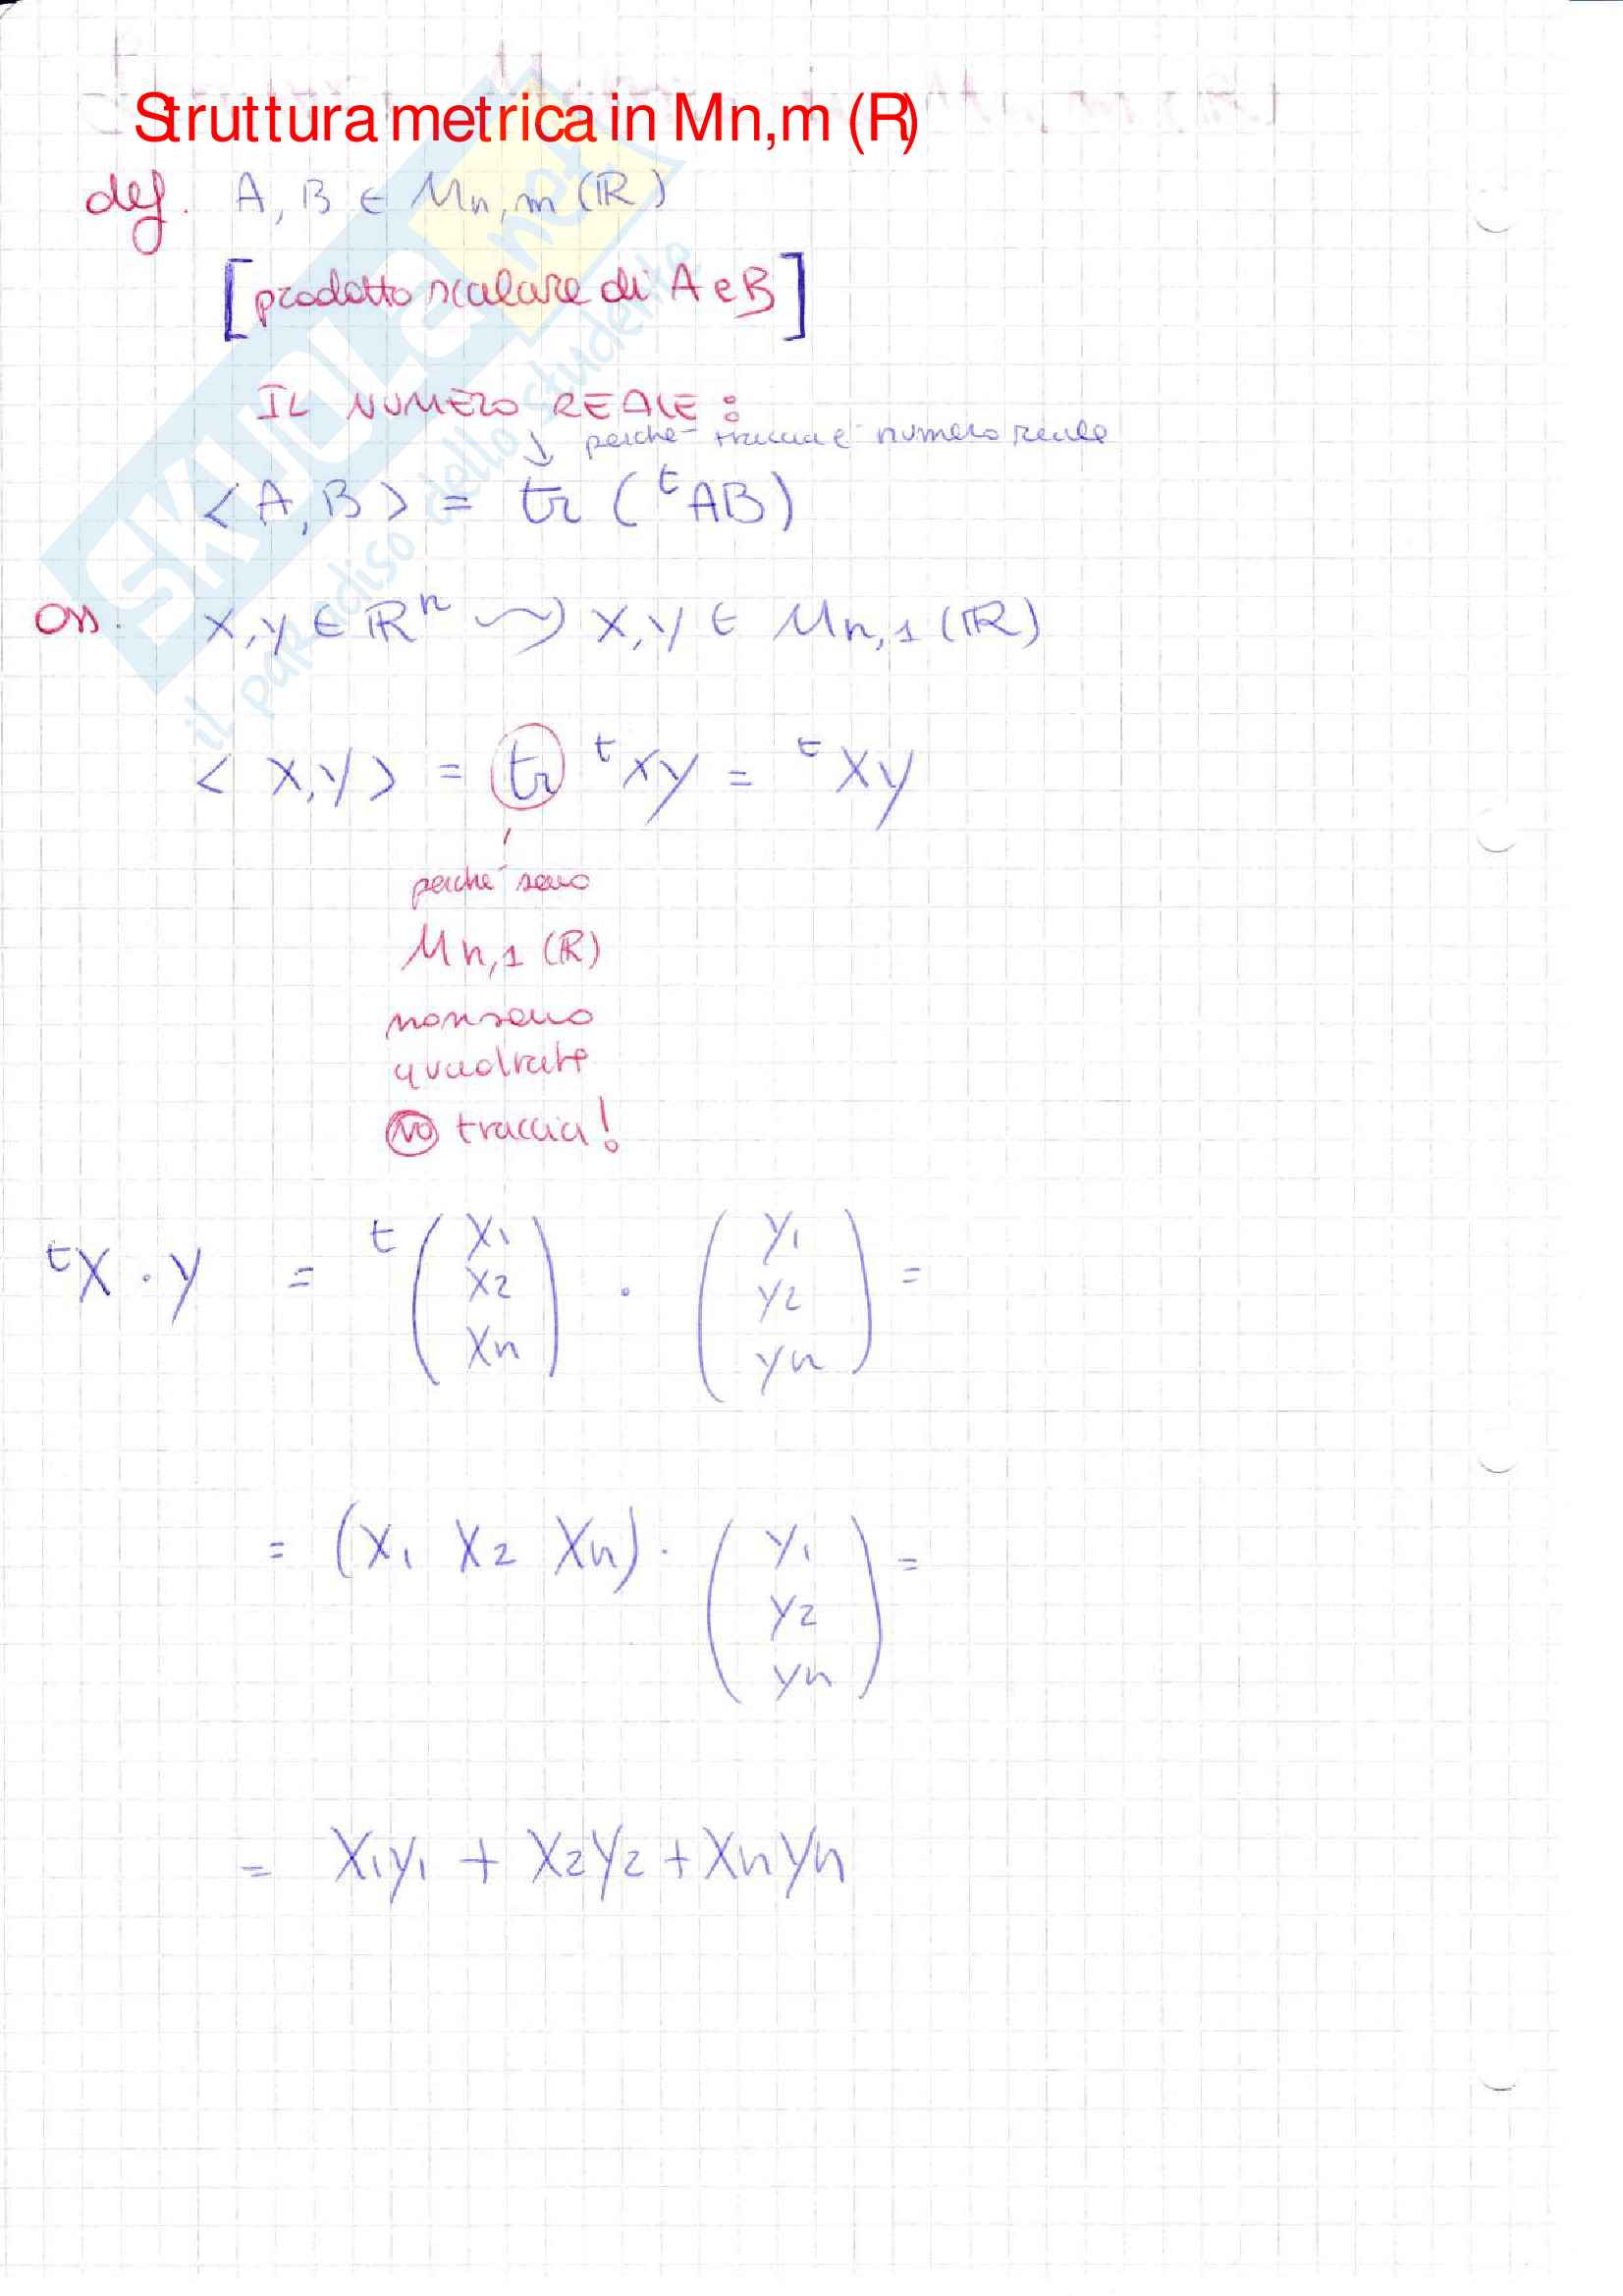 Struttura metrica in Mn,m (R)
def. A, B ∈ Mn,m (ℝ)
[prodotto scalare di A e B]
IL NUMERO REALE:
↓ perché traccia è numero reale
<A,B> = tr (ᵗAB)
Oss. X,y ∈ ℝⁿ ⤳ X,y ∈ Mn,1 (ℝ)
< X,y > = tr ᵗXy = ᵗXy
perché sono
Mn,1 (ℝ)
non sono
quadrate
NO traccia!
ᵗX · y = ᵗ(X1 X2 Xn) · (y1 y2 yn) =
= (X1 X2 Xn) · (y1 y2 yn) =
= X1y1 + X2y2 + Xnyn
SKUOLA.net
il paradiso dello studente